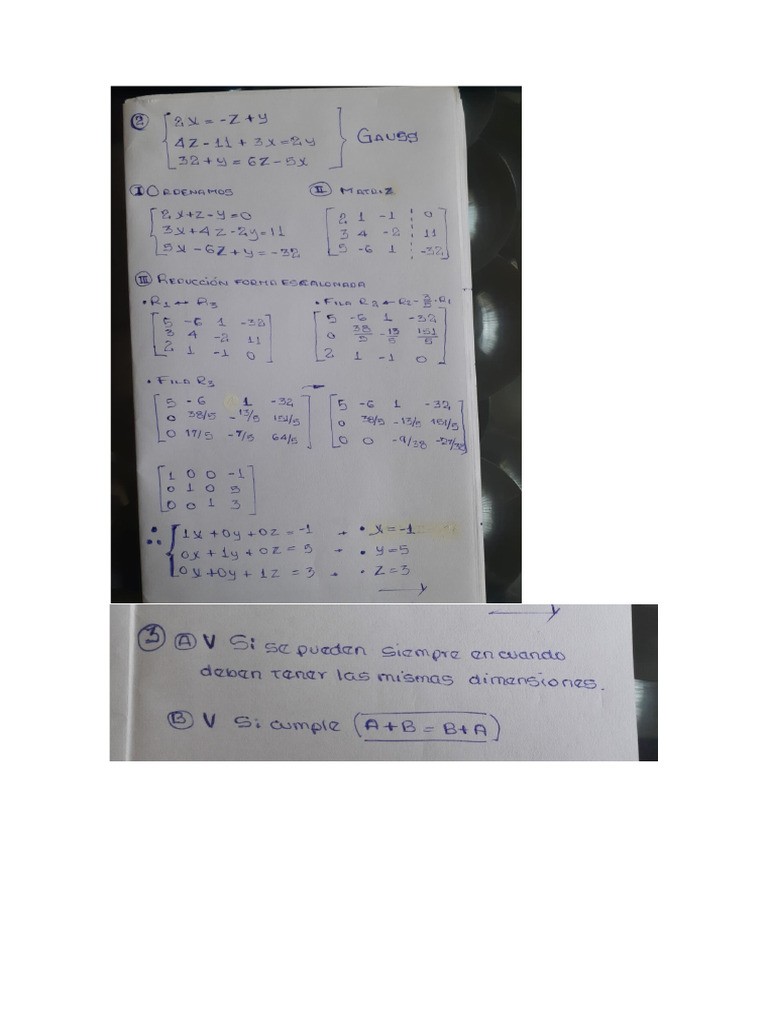 ② 2x = -z + y
4z - 11 + 3x = 2y
32 + y = 6z - 5x
GAUSS
Ⓘ ORDENAMOS
2x + z - y = 0
3x + 4z - 2y = 11
5x - 6z + y = -32
Ⓘⓘ MATRIZ
2 1 -1 0
3 4 -2 11
5 -6 1 -32
Ⓘⓘⓘ REDUCCIÓN FORMA ESCALONADA
• R1 ↔ R3
5 -6 1 -32
3 4 -2 11
2 1 -1 0
• FILA R2 ← R2 - 3/5 · R1
5 -6 1 -32
0 38/5 -13/5 151/5
2 1 -1 0
• FILA R3
5 -6 1 -32
0 38/5 -13/5 151/5
0 17/5 -7/5 64/5
→
5 -6 1 -32
0 38/5 -13/5 151/5
0 0 -9/38 -27/38
1 0 0 -1
0 1 0 5
0 0 1 3
∴ 1x + 0y + 0z = -1 → • x = -1
0x + 1y + 0z = 5 → • y = 5
0x + 0y + 1z = 3 → • z = 3
③ Ⓐ V Si se pueden siempre en cuando
deben tener las mismas dimensiones.
Ⓑ V Si cumple (A + B = B + A)